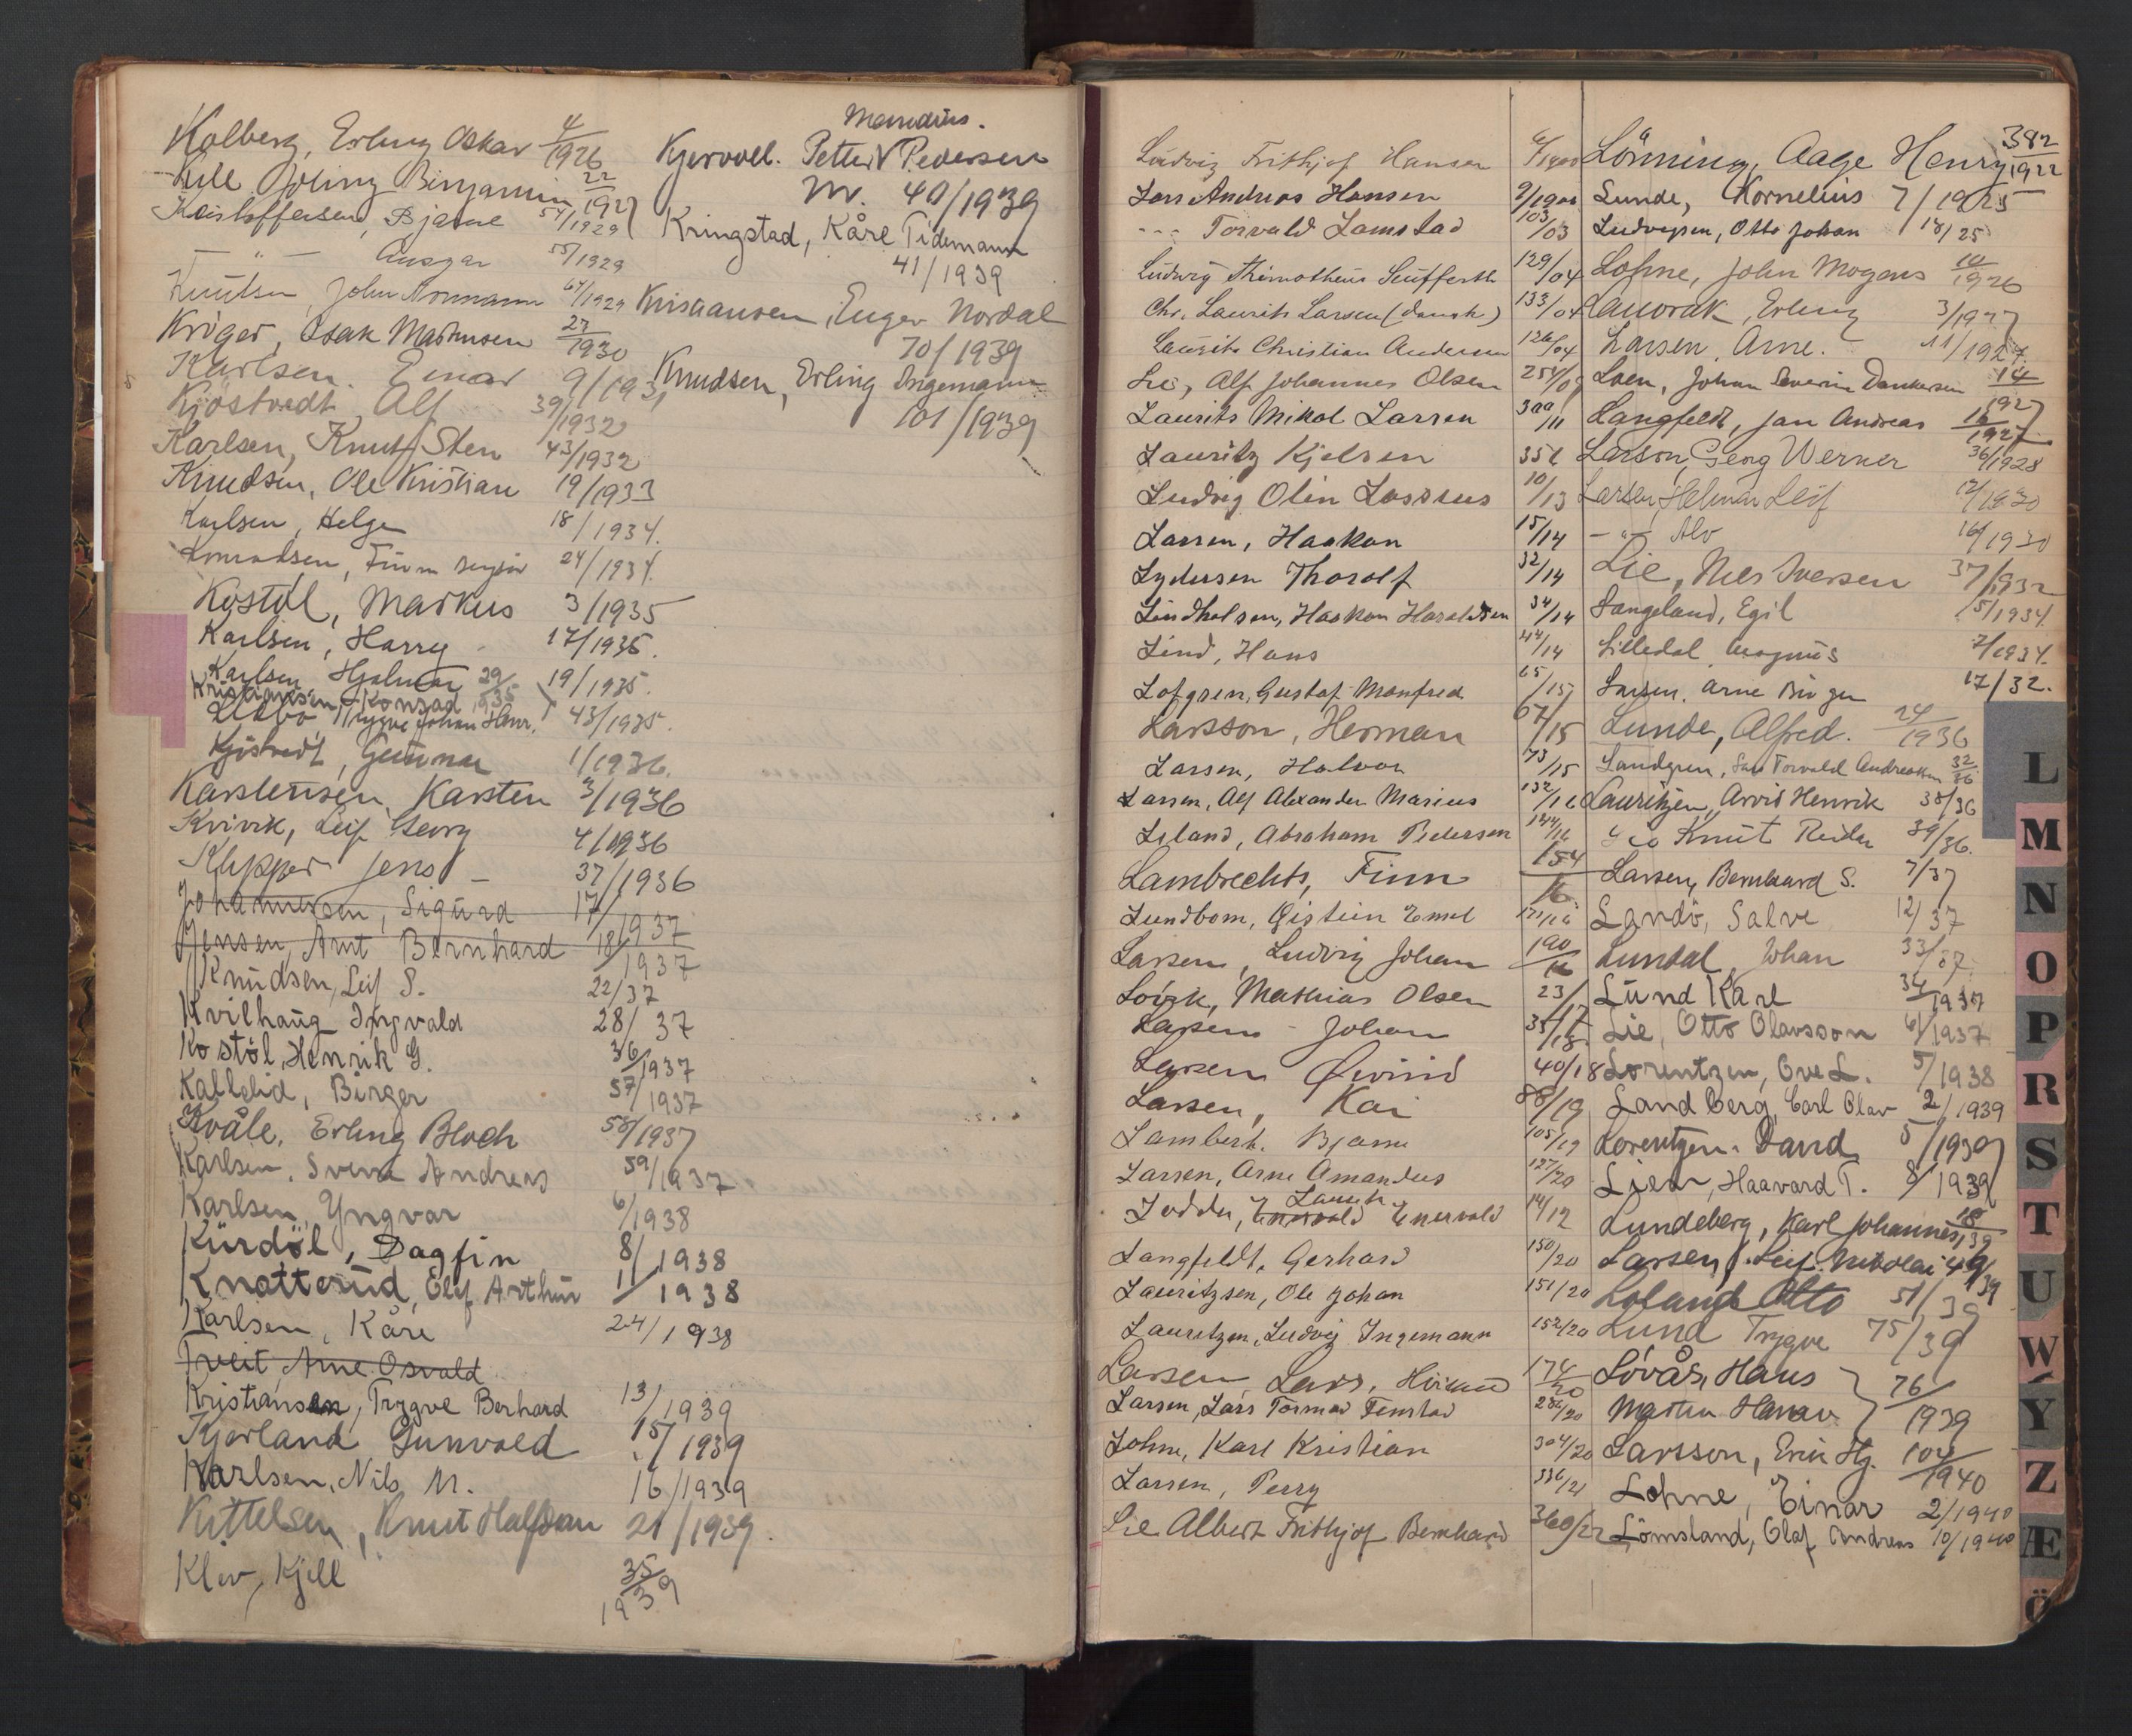 Kolberg, Erling Oskar 4/1926
Bingjamin 22/1927
Kristoffersen, Bjarne 54/1929
— " — Ansgar 55/1929
Knutsen, John Normann 64/1929
Kröger, Isak Markusen 27/1930
Karlsen. Einar 9/1931
Kjöstvedt Alf 39/1932
Karlsen, Knut Sten 43/1932
Knudsen, Ole Kristian 19/1933
Karlsen, Helge 18/1934.
Konradsen, Finn 24/1934.
Kostöl, Markus 3/1935
Karlsen, Harry 17/1935.
Karlsen Hjalmar 19/1935.
Kristiansen, Konrad 29/1935
Trygve Johan Henr. 43/1935.
Kjöstvedt, Gunnar 1/1936.
Karstensen, Karsten 3/1936
Kvivik, Leif Georg 4/1936
Klepper Jens 37/1936
Johannessen, Sigurd 17/1937
Jensen, Arnt Bernhard 18/1937
Knudsen, Leif S. 22/37
Kvilhaug Ingvald 28/37
Kostöl, Henrik G. 36/1937
Kalleid, Birger 57/1937
Kvåle, Erling Bloch 58/1937
Karlsen, Svend Andreas 59/1937
Karlsen, Yngvar 6/1938
Kürdöl, Dagfin 8/1938
Knatterud, Olef Arthur 11/1938
Karlsen, Kåre 24/1938
Tveit, Arne Osvald
Kristiansen, Trygve Berhard 13/1939
Kjerland Gunvald 15/1939
Karlsen, Nils M. 16/1939
Kittelsen, Knut Halfdan 21/1939.
Kliv, Kjell 35/1939
Menedius.
Kjervoll. Petter V Pedersen
Nr. 40/1939
Kringstad, Kåre Tidemann
41/1939
Kristiansen, Euger Nordal
70/1939
Knudsen, Erling Ingemann
101/1939
Ludvig Frithjof Hansen 6/1900
Lars Andreas Hansen 9/1900
--- Torvald Lamstad 103/03
Ludwig Thimotheus Seufferth 129/04
Chr. Laurits Larsen (dansk) 133/04
Laurits Christian Andersen 126/04
Lie, Alf Johannes Olsen 254/09
Laurits Mikal Larsen 300/11
Lauritz Kjelsen 356
Ludvig Olin Lassus 10/13
Larsen, Haakon 15/14
Lydersen Thoralf 32/14
Lindholsen, Haakon Haraldsen 34/14
Lind, Hans 44/14
Lofgren, Gustaf Manfred 65/15
Larsson, Herman 67/15
Larsen, Halvor 73/15
Larsen, Alf Alexander Marius 132/16
Leland, Abraham Pedersen 144/16
Lambrechts, Finn 154/16
Lundbom, Øistein Emil 171/16
Larsen, Ludvig Johan 190/16
Lövik, Mathias Olsen 23/17
Larsen - Johan 35/18
Larsen Øivind 40/18
Larsen, Kai 88/19
Lambert. Bjarne 105/19
Larsen, Arne Amandus 127/20
Lauritz
Lodder, Enevald Enevald 14/12
Langfeldt, Gerhard 150/20
Lauritzsen, Ole Johan 151/20
Lauritzen, Ludvig Ingemann 152/20
Larsen Lars, 174/20
Larsen, Lars Tormod Fenstad 286/20
Lohne, Karl Kristian 304/20
Larsen, Perry 336/21
Lie Albert Frithjof Bernhard 360/22
Lönning, Aage Henry 382/1922
Lunde, Kornelius 7/1925
Ludvigsen, Otto Johan 18/25
Lohne, John Mogens 10/1926
Lauvrak, Erling 3/1927
Larsen, Arne. 11/1927.
Loen, Johan Severin Dankersen 14/1927
Langfeldt, Jan Andreas 16/1927
Larson, Georg Werner 36/1928
Larsen, Helmar Leif 12/1930
— " — Alv 16/1930
Lie, Nils Iversen 37/1932
Langeland, Egil 5/1934.
Lilledal, Magnus 7/1934.
Larsen, Arne Birger 17/32.
Lunde, Alfred. 24/1936
Landgren, Lars Torvald Andreassen 32/36
Lauritzen, Arvid Henrik 38/36
Knut Reidar 39/36.
Larsen, Bernhard S. 7/37
Landö, Salve 12/37
Lundal Johan 33/37.
Lund Karl 34/1937
Lie, Otto Olavsson 61/1937
Lorentzen, Ove L. 5/1938
Landberg, Carl Olav 2/1939
Lorentzen. David 5/1939
Lien, Haavard T. 8/1939
Lundeberg, Karl Johannes 18/39
Larsen, Leif Nikolai 49/39
Loland Otto 51/39
Lund Trygve 75/39
Lövås, Hans } 76/
Martin Hanav } 1939
Larsson, Erik Hj. 104/1940
Lohne, Einar 2/1940
Lömsland, Olaf Andreas 10/1940
L
M
N
O
P
R
S
T
U
W
Y
Z
Æ
Ö